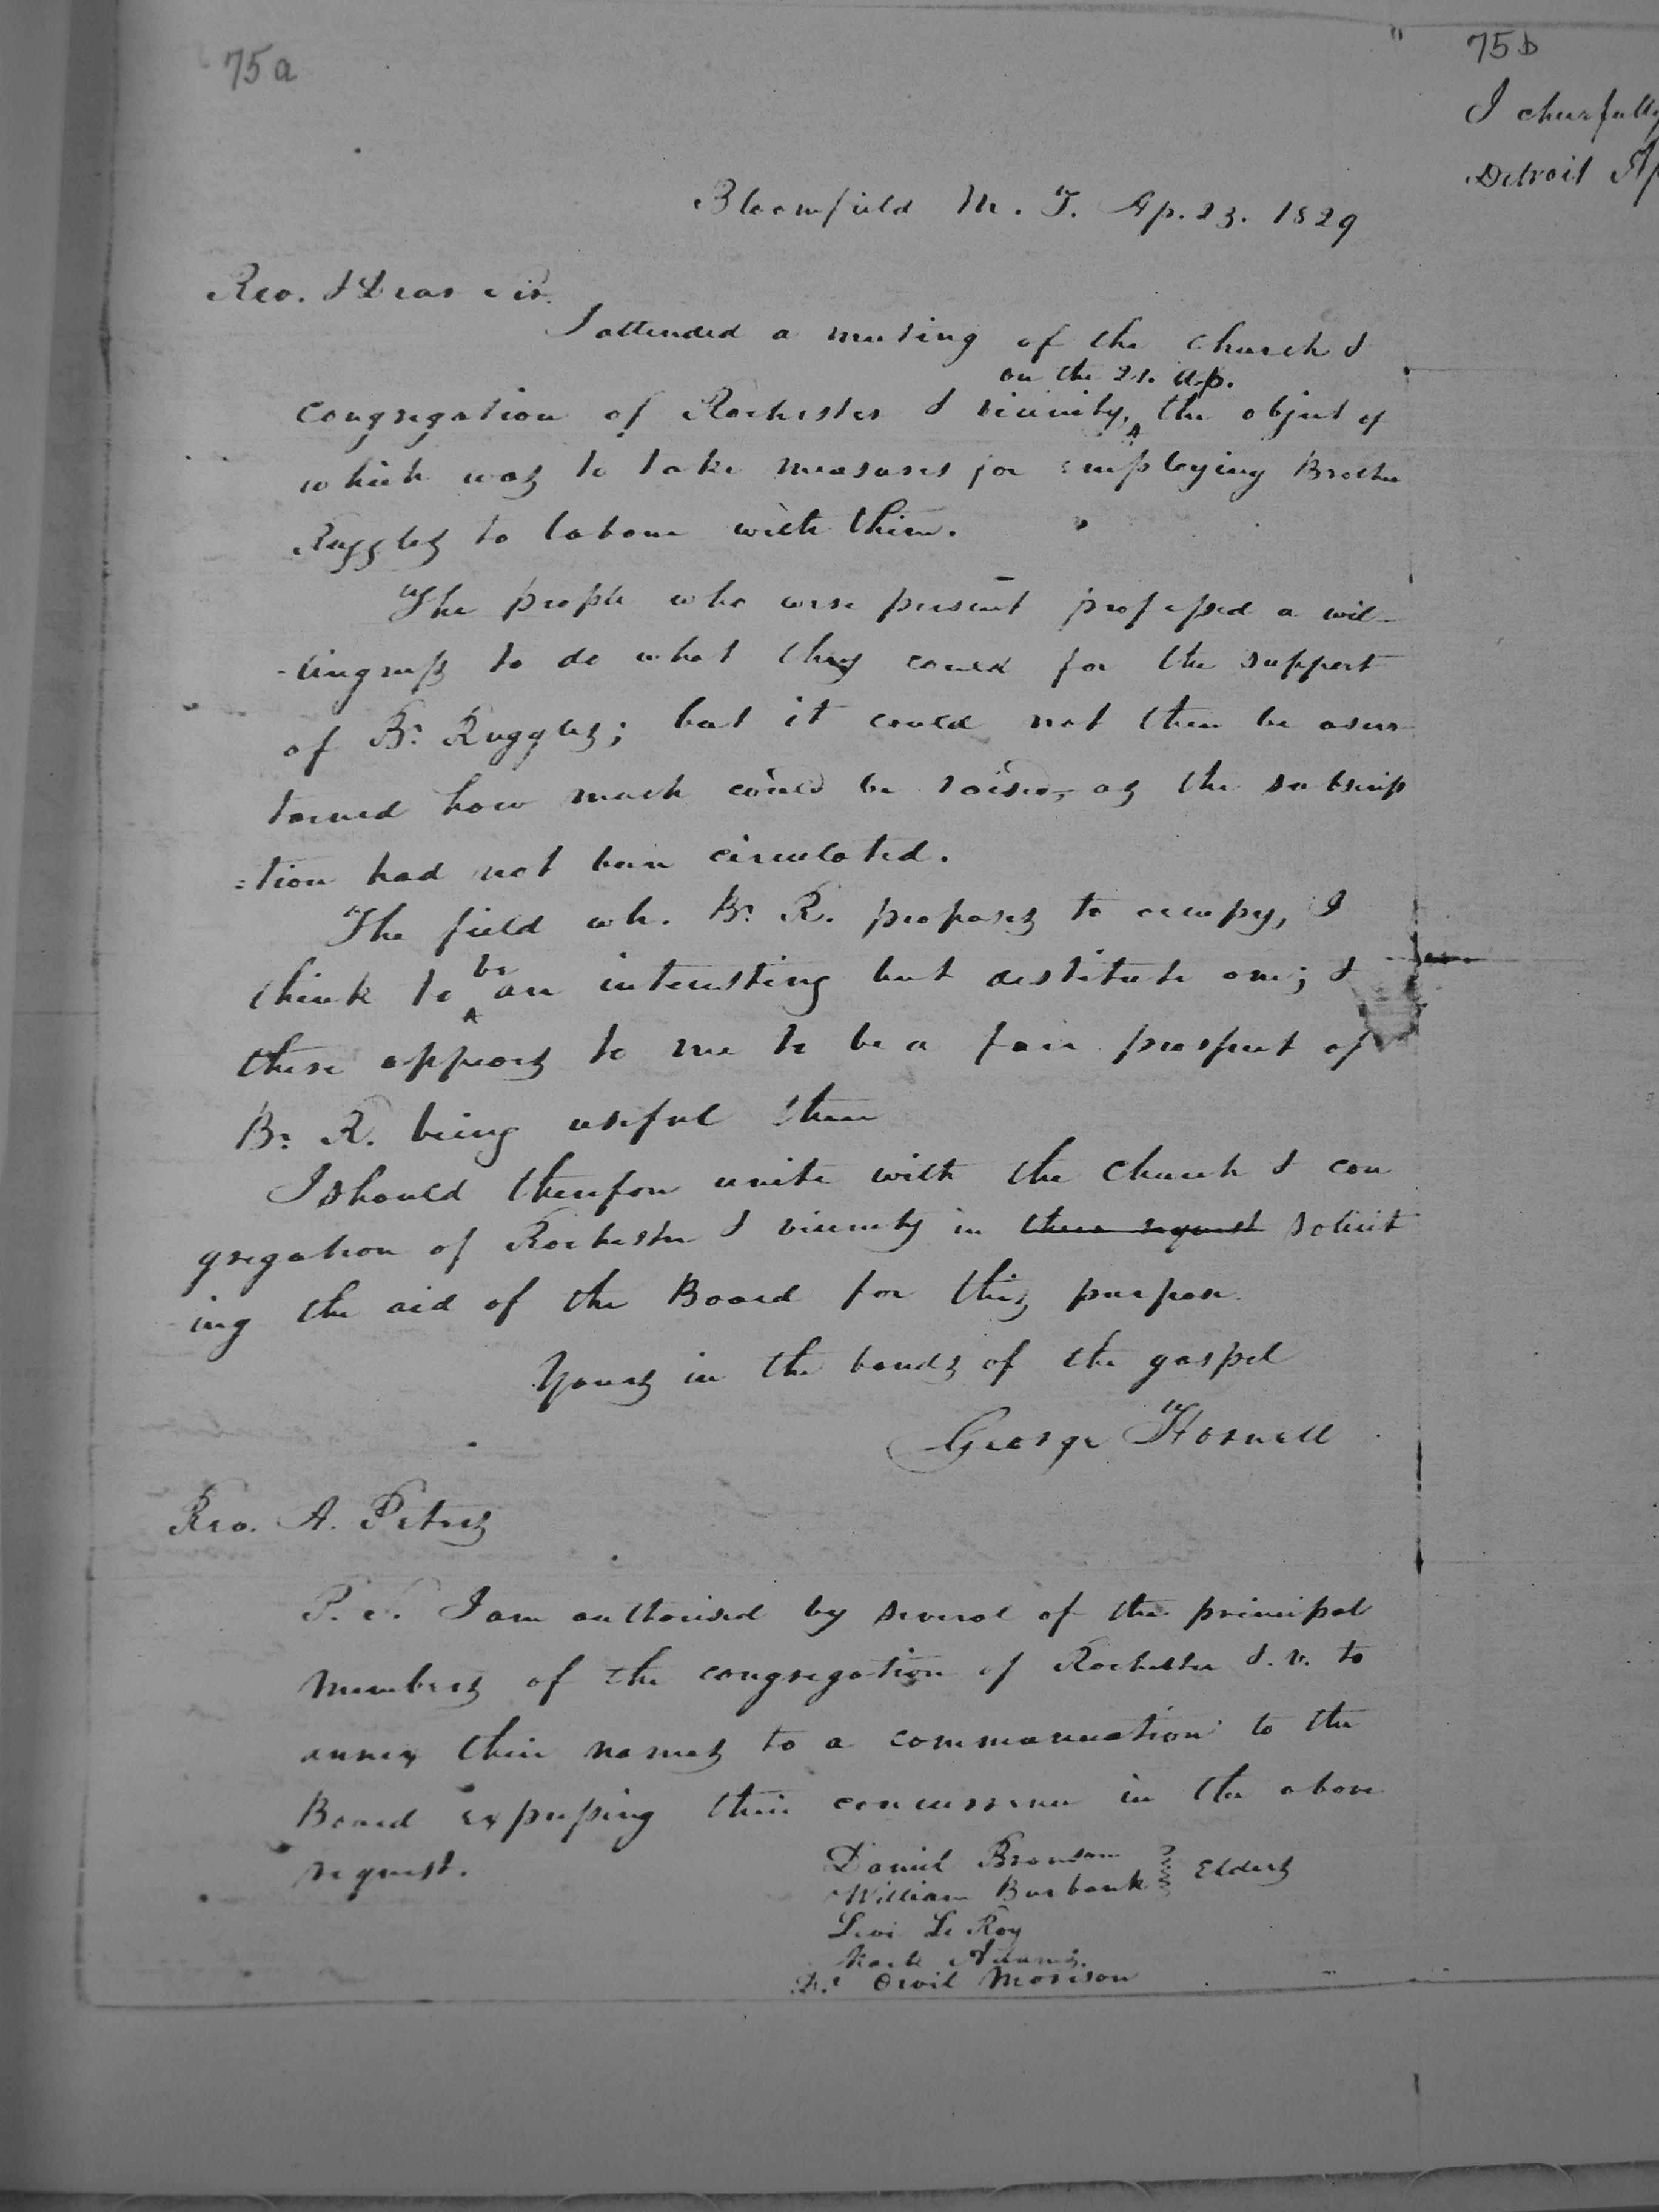 75a
75b
I cheerfully
Detroit Ap
Bloomfield M. T. Ap. 23. 1829
Rev. & Dear Sir.
I attended a meeting of the church &
on the 21. Ap.
congregation of Rochester & vicinity, ^ the object of
which was to take measures for employing Brother
Ruggles to labour with them.
The people who were present professed a wil-
-lingness to do what they could for the support
of Br. Ruggles; but it could not then be ascer
tained how much could be raised, as the subscrip
=tion had not been circulated.
The field wh. Br. R. proposes to occupy, I
think to ^ be an interesting but destitute one; &
there appears to me to be a fair prospect of
Br. R. being useful there
I should therefore unite with the church & con
gregation of Rochester & vicinity in their request solicit
ing the aid of the Board for this purpose.
Yours in the bonds of the gospel
George Hornell
Rev. A. Peters
P.S. I am authorised by several of the principal
members of the congregation of Rochester & v. to
annex their names to a communication to the
Board expressing their concurrence in the above
request.
Daniel Bronson
William Burbank } Elders
Levi Le Roy
Mark Adams.
Dr. Orvil Morison